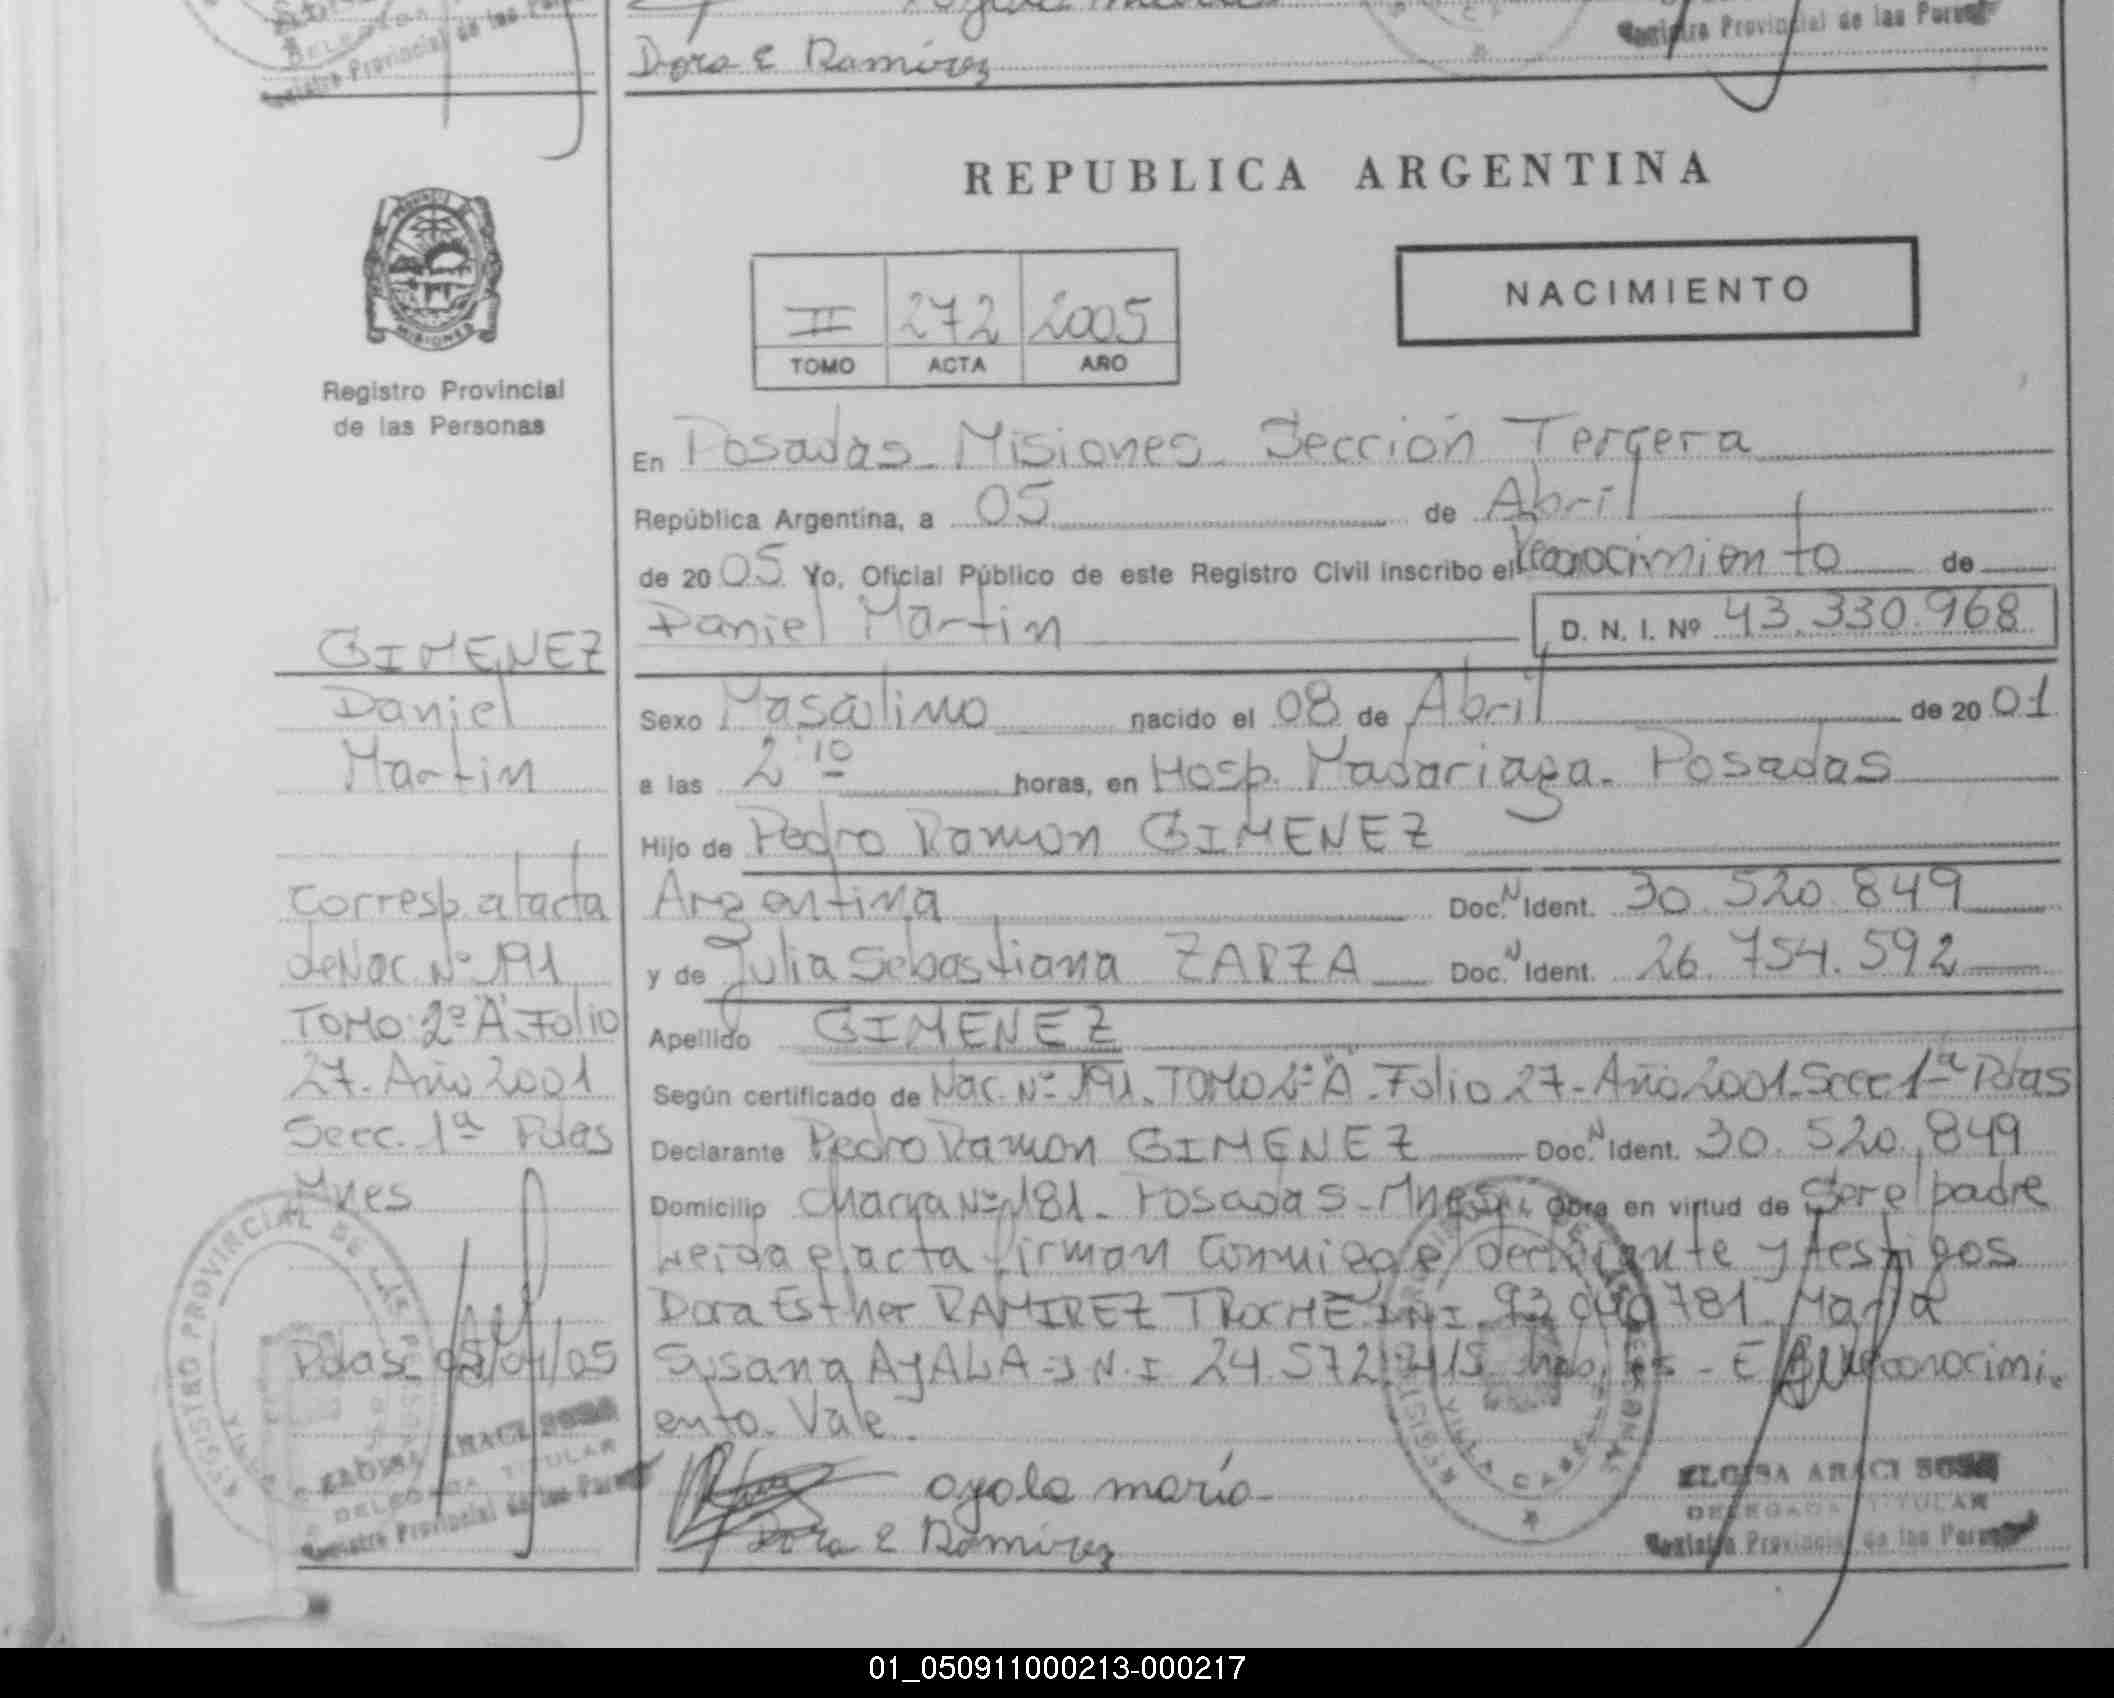 Dora E Ramírez
Registro Provincial de las Personas
REPUBLICA ARGENTINA
NACIMIENTO
II 272 2005
TOMO ACTA AÑO
MISIONES
Registro Provincial
de las Personas
En Posadas - Misiones - Sección Tercera
República Argentina, a 05 de Abril
de 2005 Yo, Oficial Público de este Registro Civil inscribo el Reconocimiento de
Daniel Martin D. N. I. Nº 43.330.968
GIMENEZ
Daniel
Martin
Corresp. al acta
de Nac. Nº 191
TOMO: 2º "A" Folio
27 - Año 2001
Secc. 1ª Pdas
Mnes
Pdas 05/04/05
Sexo Masculino nacido el 08 de Abril de 2001
a las 2 10 horas, en Hosp. Madariaga - Posadas
Hijo de Pedro Ramon GIMENEZ
Argentina Doc. N Ident. 30.520.849
y de Julia Sebastiana ZARZA Doc. N Ident. 26.754.592
Apellido GIMENEZ
Según certificado de Nac. Nº 191 - TOMO 2º "A" - Folio 27 - Año 2001 - Secc 1ª Pdas
Declarante Pedro Ramon GIMENEZ Doc. N Ident. 30.520.849
Domicilio Chacra Nº 181 - Posadas - Mnes. Obra en virtud de Ser el padre
Leida el acta firman Conmigo el declarante y testigos
Dora Esther RAMIREZ TROCHE D.N.I. 92.040.781 Maria
Susana AYALA D.N.I 24.572. - E/L Reconocimi-
ento. Vale.
ayala maría
Dora E Ramírez
ELOISA ARACI SOSA
DELEGADA TITULAR
Registro Provincial de las Personas
ELOISA ARACI SOSA
DELEGADA TITULAR
Registro Provincial de las Personas
01_050911000213-000217